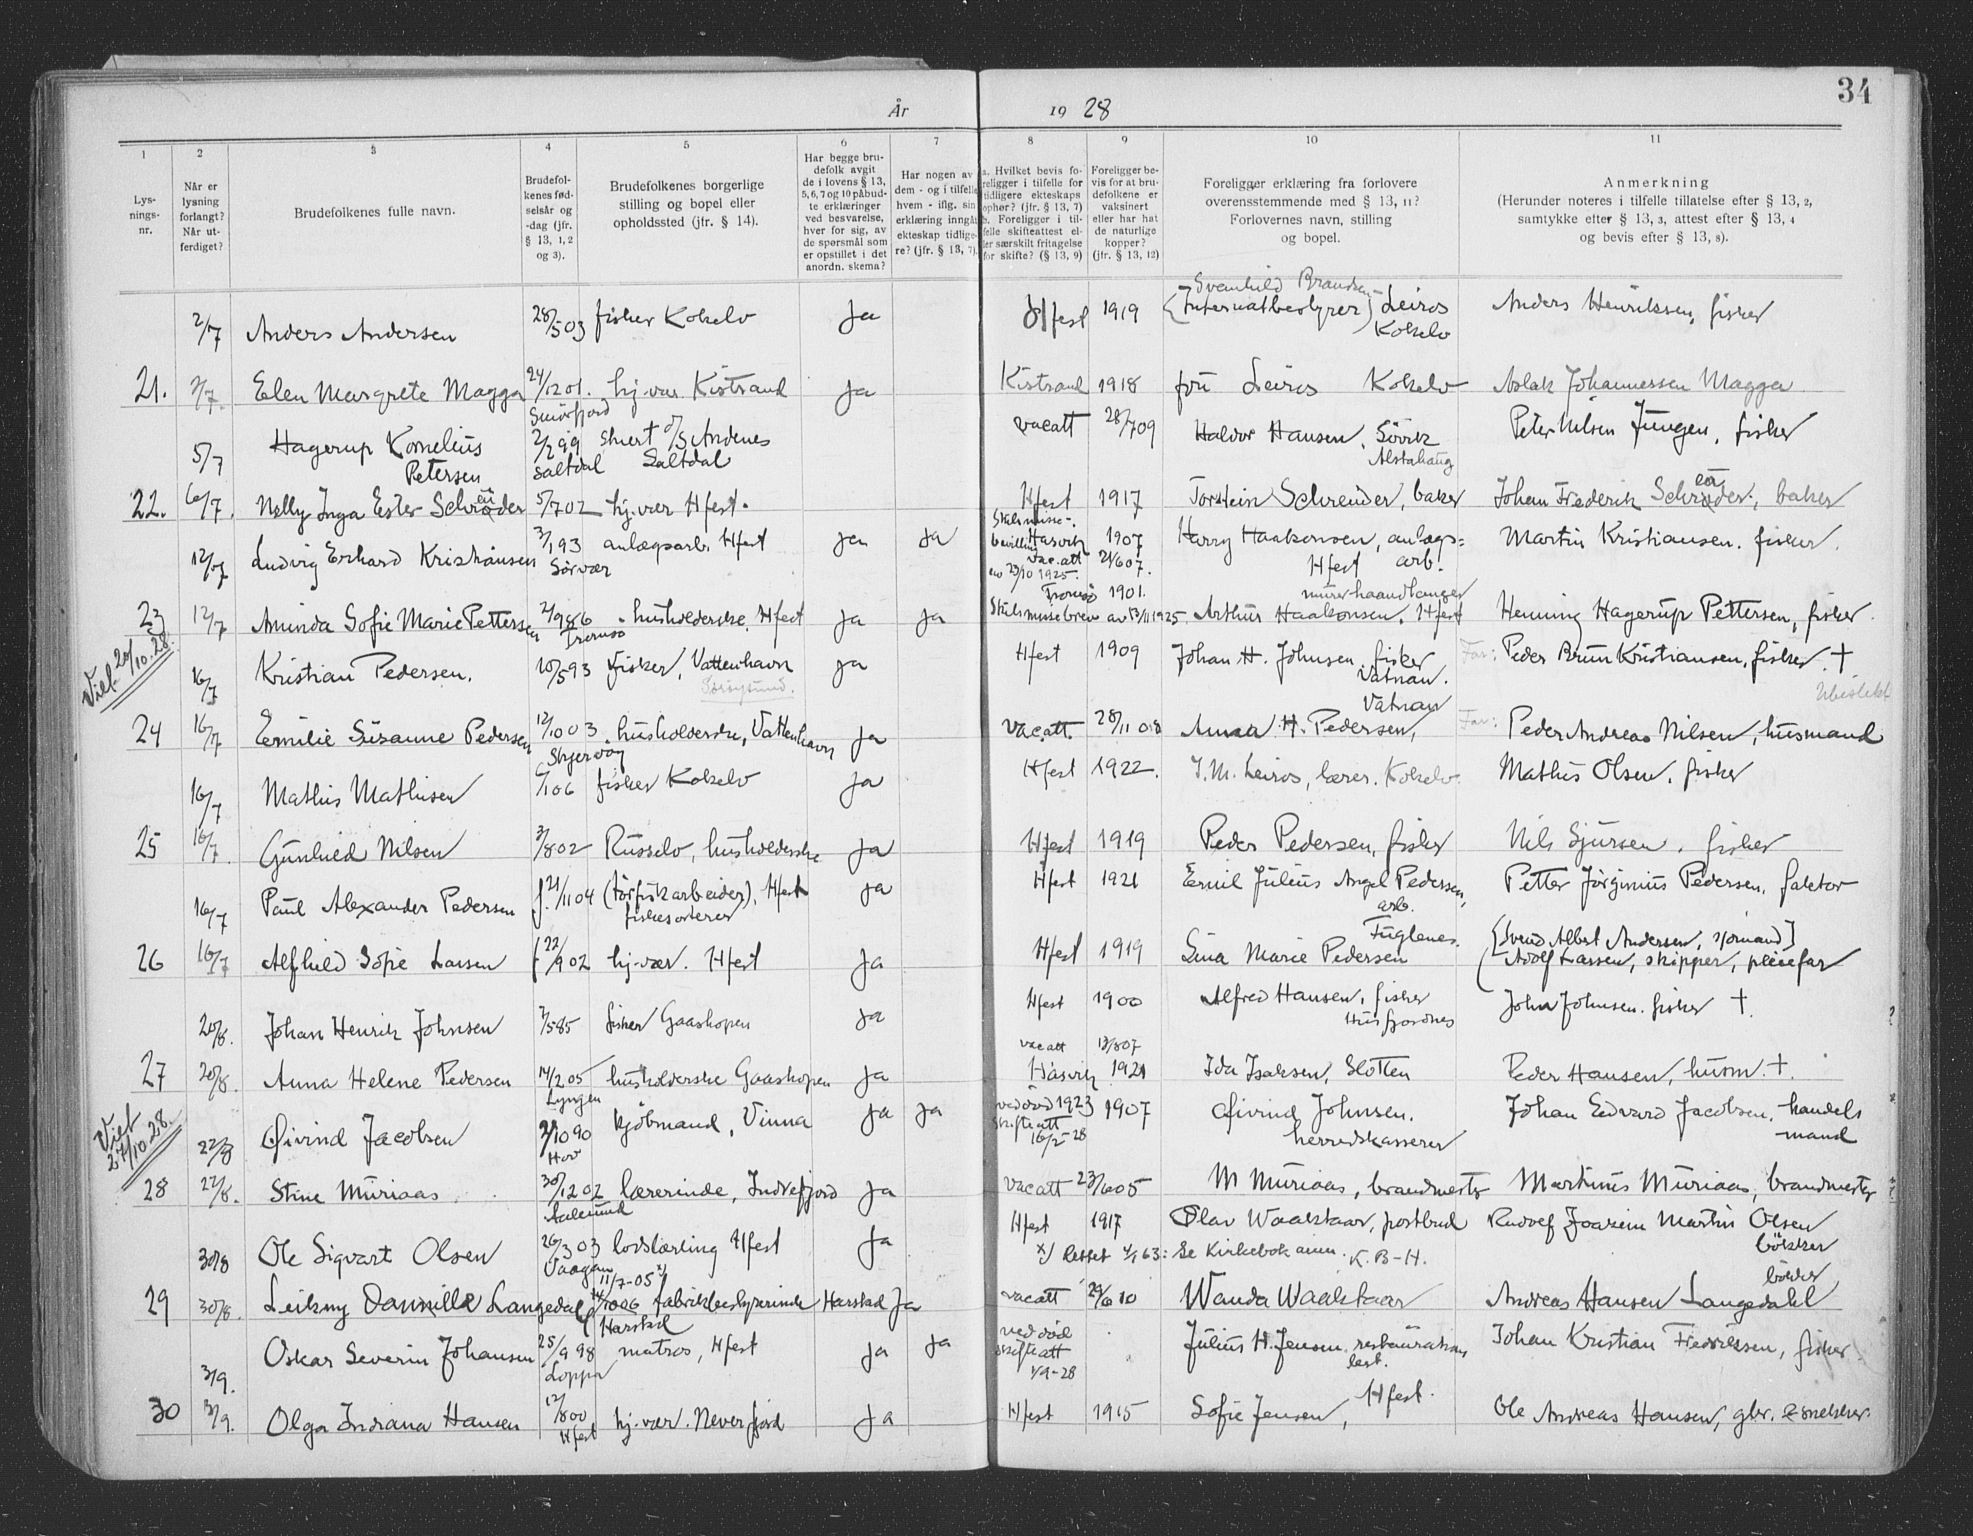 34
År 1928
1 2 3 4 5 6 7 8 9 10 11
Lysnings-nr.
Når er lysning forlangt? Når utferdiget?
Brudefolkenes fulle navn.
Brudefolkenes fødselsår og -dag (jfr. § 13, 1, 2 og 3).
Brudefolkenes borgerlige stilling og bopel eller opholdssted (jfr. § 14).
Har begge brudefolk avgit de i lovens § 13, 5, 6, 7 og 10 påbudte erklæringer ved besvarelse, hver for sig, av de spørsmål som er opstillet i det anordn. skema?
Har nogen av dem - og i tilfelle hvem - iflg. sin erklæring inngå ekteskap tidligere? (jfr. § 13, 7).
a. Hvilket bevis foreligger i tilfelle for tidligere ekteskaps ophør? (jfr. § 13, 7) b. Foreligger i tilfelle skifteattest eller særskilt fritagelse for skifte? (§ 13, 9)
Foreligger bevis for at brudefolkene er vaksinert eller har hat de naturlige kopper? (jfr. § 13, 12)
Foreligger erklæring fra forlovere overensstemmende med § 13, 11? Forlovernes navn, stilling og bopel.
Anmerkning (Herunder noteres i tilfelle tillatelse efter § 13, 2, samtykke efter § 13, 3, attest efter § 13, 4 og bevis efter § 13, 8).
2/7 Anders Andersen 28/5 03 fisker Kokelv Ja Hfest 1919 Svanhild Brandsen (Internatbestyrer) Leiros Kokelv Anders Henriksen, fisker
21. 2/7. Elen Margrete Magga 24/12 01. hj. vær Kistrand Ja Kistrand 1918 fru Leiros Kokelv Aslak Johannessen Magga
Smörfjord
5/7 Hagerup Kornelius Petersen 2/2 99 Saltdal stuert d/s Andenes Saltdal vacatt 28/7 09 Haldor Hansen, Sövik Alstahaug Peter Nilsen Jungen, fisker
22. 6/7. Nelly Inga Ester Schrøder 5/7 02 hj. vær Hfest. Hfest 1917 Torstein Schreuder, baker Johan Frederik Schrøder, baker
12/7 Ludvig Erhard Kristiansen 3/1 93 Sørvær anlægsarb. Hfest Ja Ja Skilsmisse-bevilling av 23/10 1925. Hasvik 1907 vac.att 21/6 07. Harry Haakonsen, anlægs=arb. Hfest Martin Kristiansen. fisker.
23 12/7 Aminda Sofie Marie Pettersen 2/9 86 Tromsö husholderske, Hfest Ja Ja Tromsö 1901. Skilsmissebrev av 13/11 1925 Arthur Haakonsen, murerhaandlanger Hfest Henning Hagerup Pettersen, fisker.
Viet 20/10.28.
16/7 Kristian Pedersen. 10/5 93 fisker, Vattenhavn Ja Hfest 1909 Johan H. Johnsen, fisker Vatnan. Far: Peder Brun Kristiansen, fisker. †
Sørøysund.
24 16/7 Emilie Susanne Pedersen 12/10 03 Skjervøy husholderske, Vattenhavn Ja Vac.att. 28/11 08 Anna H. Pedersen, Vatnan Far: Peder Andreas Nilsen, husmand
16/7 Mathis Mathisen 6/1 06 fisker Kokelv Ja Hfest 1922. I. M. Leiros, lærer. Kokelv. Mathis Olsen, fisker
25 16/7. Gunhild Nilsen 3/8 02 Russelv, husholderske Ja Hfest 1919 Peder Pedersen, fisker Nils Sjursen, fisker
16/7 Paul Alexander Pedersen f. 21/11 04 (törfiskarbeider), Hfest fiskesorterer Ja Hfest 1921 Emil Julius Angel Pedersen, arb. Petter Jörginius Pedersen, faktor
26 16/7 Alfhild Sofie Larsen f 22/9 02 hj. vær. Hfest Ja Hfest 1919 Lina Marie Pedersen Fuglenes. (Svend Albert Andersen, sjømand) Adolf Larsen, skipper, pleiefar
20/8. Johan Henrik Johnsen 7/5 85 fisker Gaashopen Ja Hfest 1900 Alfred Hansen, fisker Husfjordnes John Johnsen. fisker †
27 20/8. Anna Helene Pedersen 14/2 05 Lyngen husholderske Gaashopen Ja vacatt 13/8 07 Hasvik 1921 Ida Isaksen, Slotten Peder Hansen, husm. †.
Viet 27/10.28.
22/8 Øivind Jacobsen 2/10 90 Hov kjøbmand, Vinna Ja Ja ved död 1923 skifteatt 16/2-28 1907 Øivind Johnsen. herredskasserer Johan Edvard Jacobsen, handelsmand
28 22/8. Stine Muriaas. 30/12 02 Aalesund lærerinde, Indrefjord Ja vacatt 23/6 05 M Muriaas, brandmester Martinus Muriaas, brandmester
30/8 Ole Sigvart Olsen 26/3 03 Vaagan lodslærling Hfest Ja Hfest 1917 Olav Waaktaar, postbud Rudolf Joakim Martin Olsen bökker
x) Rettet 4/1 63: Se Kirkebok anm. K.B-H.
11/7-05 x)
29 30/8. Leikny Danielle Langedal 14/10 06 Harstad fabrikbestyrerinde Harstad Ja vacatt 29/6 10 Wanda Waaktaar Andreas Hansen Langedahl bökker
3/9. Oskar Severin Johansen 25/9 98 Loppa matros, Hfest Ja Ja ved död skifteatt 1/9-28 Julius H. Jensen restaurations best. Johan Kristian Fredriksen, fisker.
30 3/9. Olga Indiana Hansen 12/8 00 Hfest hj. vær. Neverfjord Ja Hfest 1915 Sofie Jensen, Hfest. Ole Andreas Hansen, gbr. snekker.